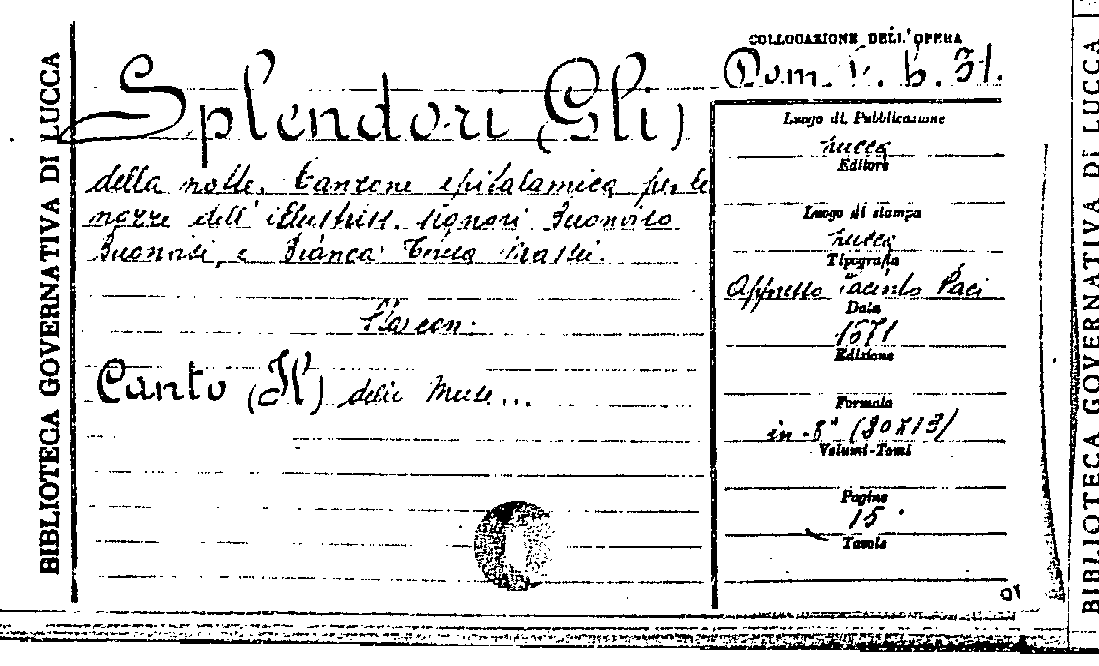 BIBLIOTECA GOVERNATIVA DI LUCCA
COLLOCAZIONE DELL'OPERA
Bom. V. b. 31.
Splendori (Gli)
della notte. Canzone epitalamica per le
nozze dell' illustriss. signori Buonviso
Buonvisi, e Bianca Teresa
Canto (Il) delle Muse...
Luogo di Pubblicazione
Lucca
Editore
Luogo di stampa
Lucca
Tipografia
Appresso Iacinto Paci
Data
1671
Edizione
Formato
in-8° (20X13)
Volumi-Tomi
Pagine
15.
Tavole
BIBLIOTECA GOVERNATIVA DI LUCCA